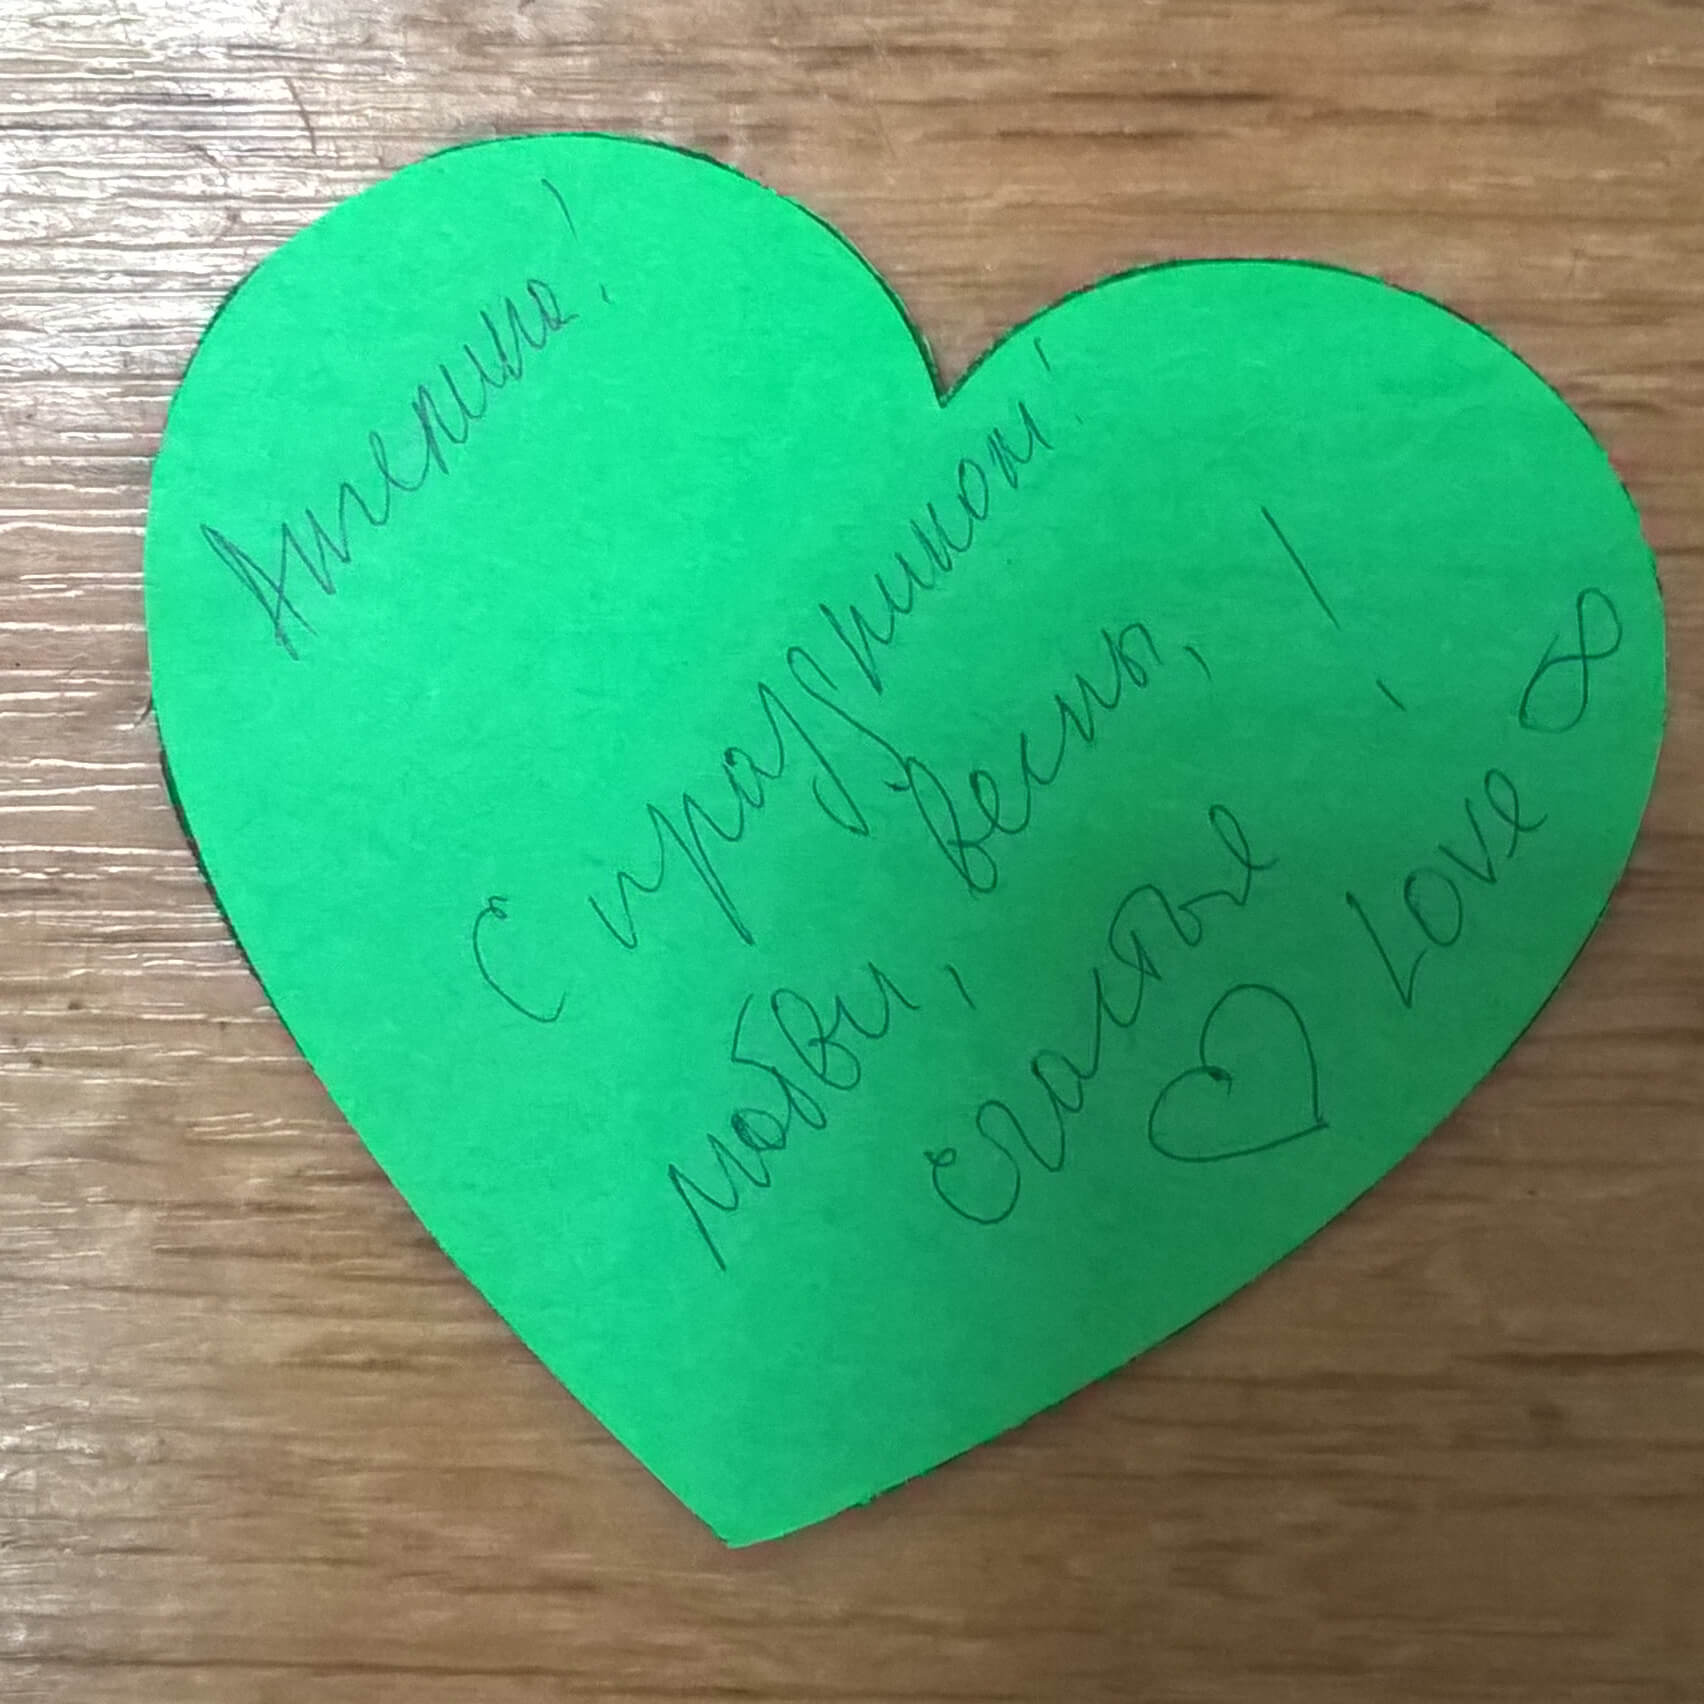 Ангелина!
С праздником!
любви, весны,
счастье!
Love ∞